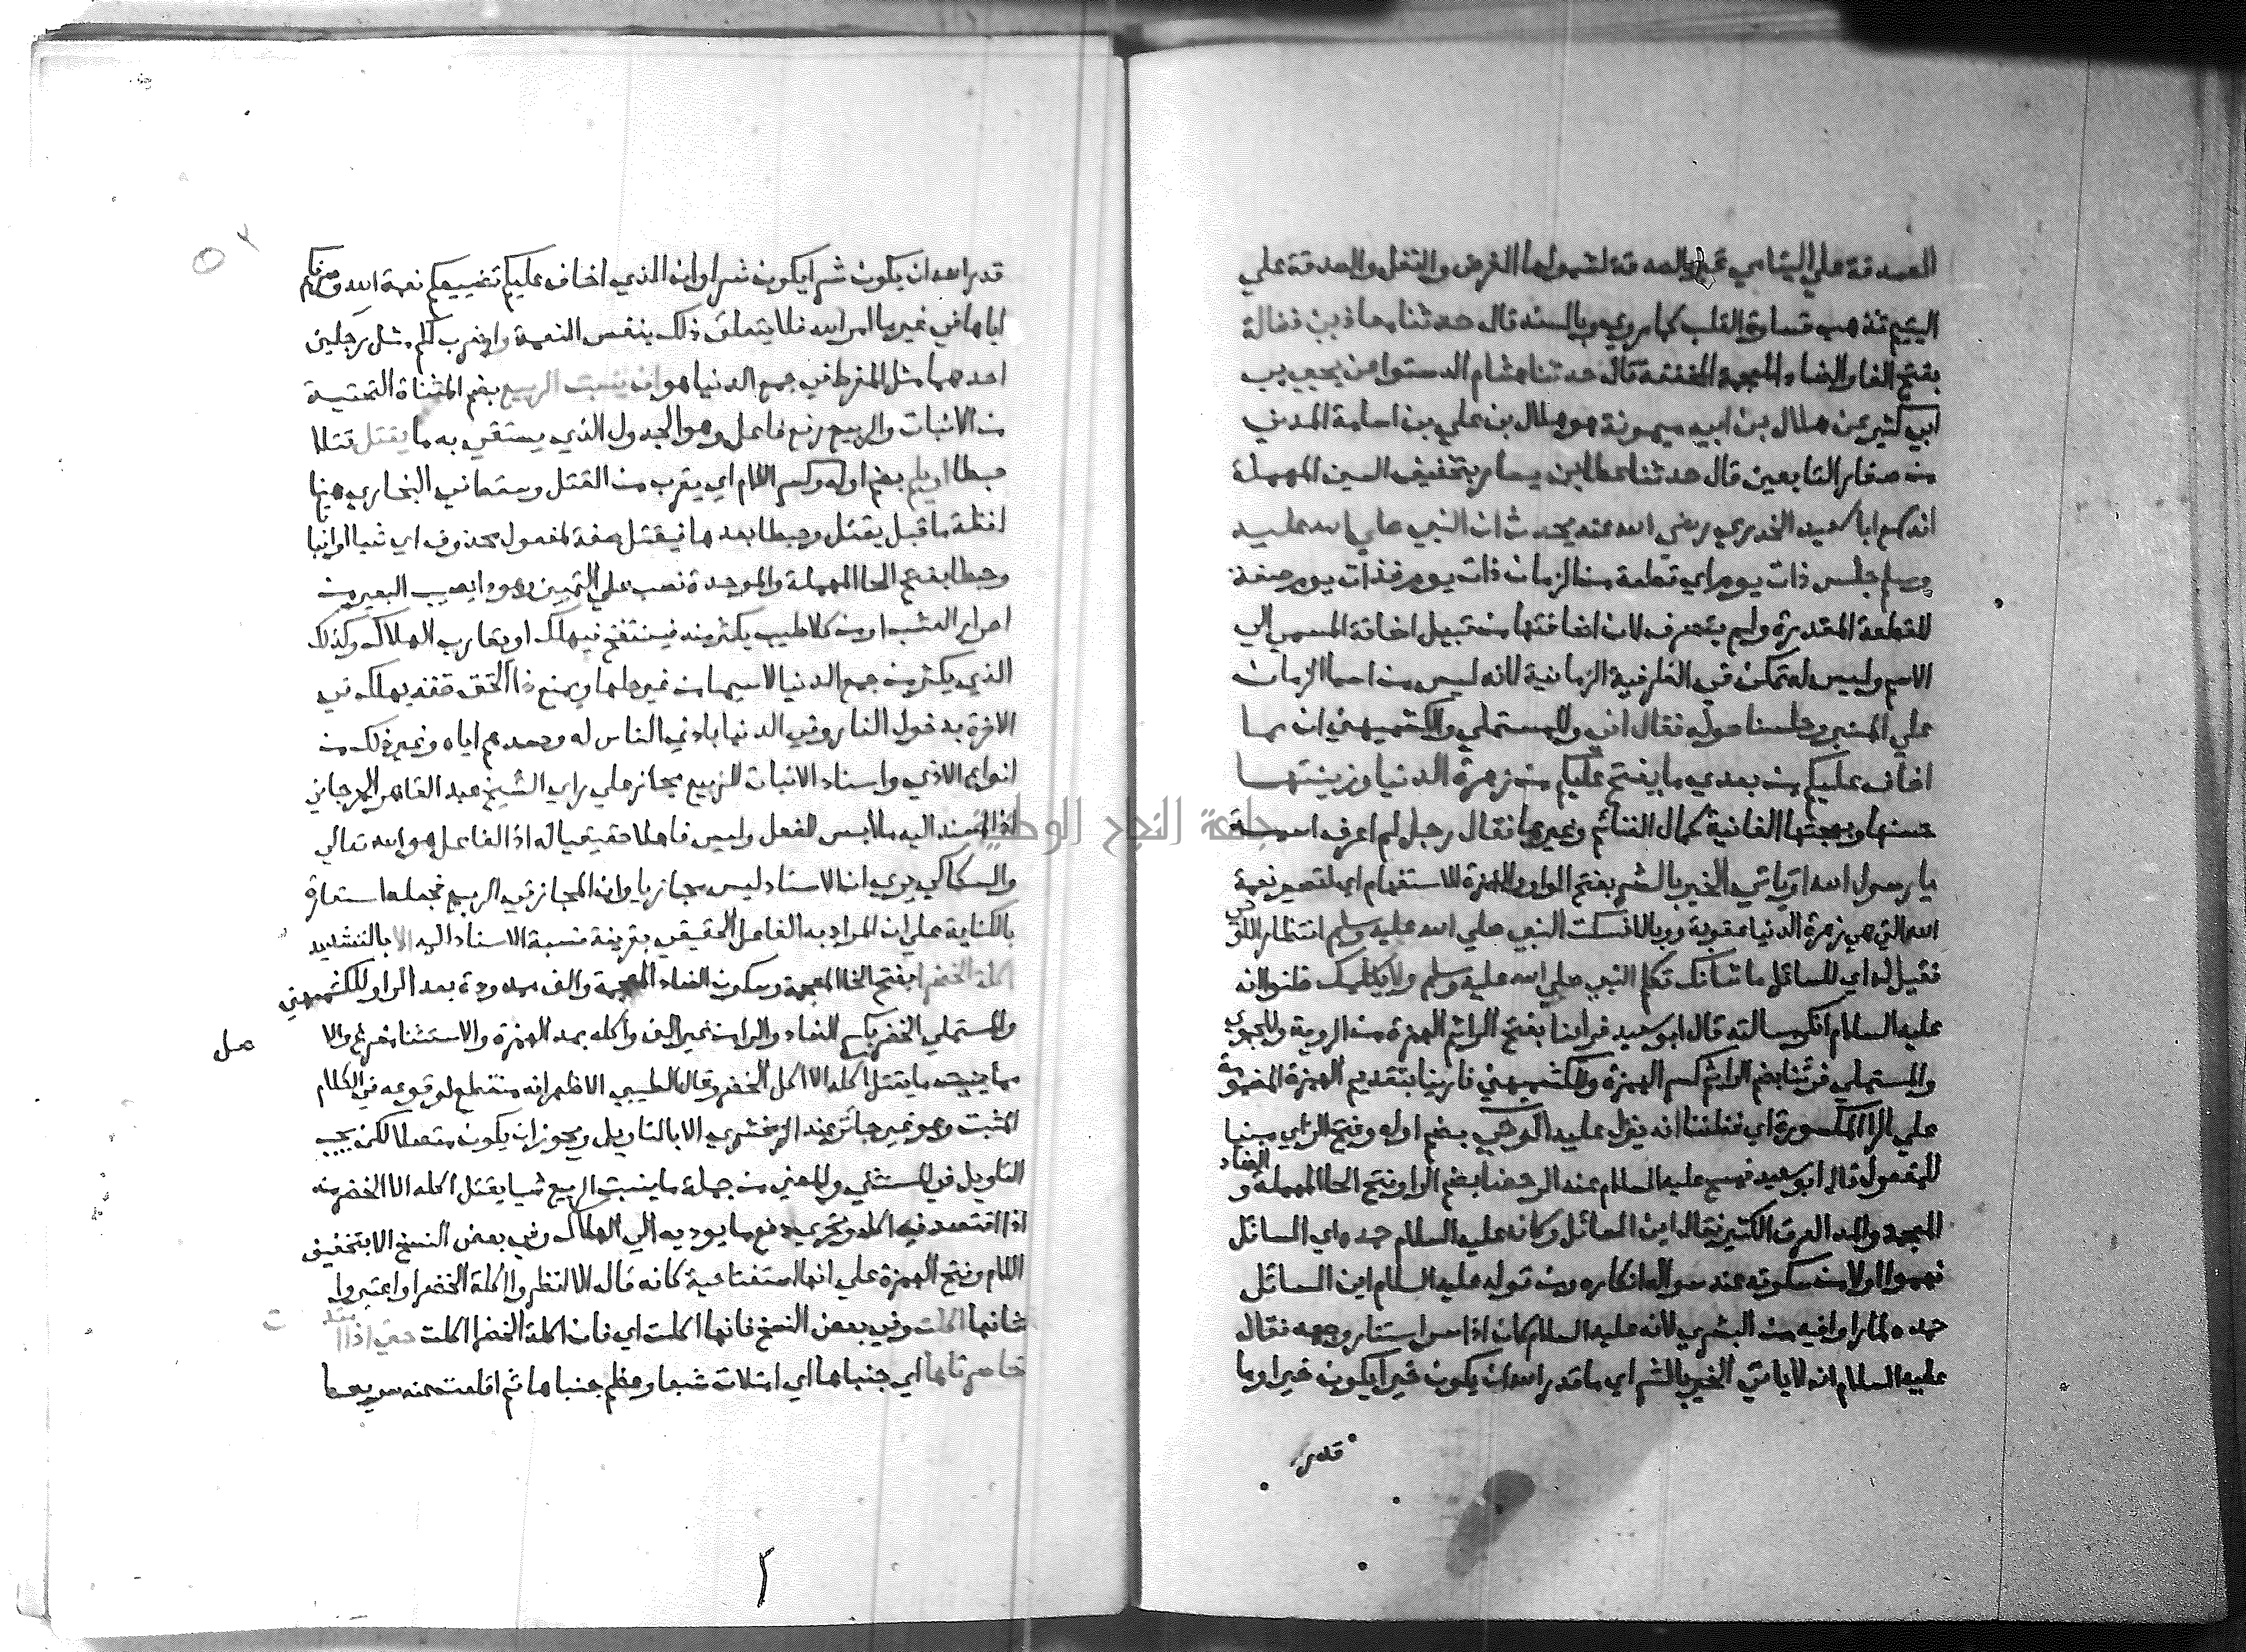 الصدقة علي اليتامي عبر بالصدقة لشمولها الفرض والنفل والصدقة علي
اليتيم تذهب قساوة القلب كما روي وبالسند قال حدثنا معاذ بن فضالة
بفتح الفا والضاد المعجمة المخففة قال حدثنا هشام الدستوا عن يحيي بن
ابي كثير عن هلال بن ابي ميمونة هو هلال بن علي بن اسامة المدني
من صغار التابعين قال حدثنا عطا بن يسار بتخفيف السين المهملة
انه سمع ابا سعيد الخدري رضي الله عنه يحدث ان النبي صلي الله عليه
وسلم جلس ذات يوم اي قطعة من الزمان ذات يوم فذات يوم صفة
للقطعة المقدرة ولم يتصرف لان اضافتها من قبيل اضافة المسمي الي
الاسم وليس له تمكن في الظرفية الزمانية لانه ليس من اسما الزمان
علي المنبر وجلسنا حوله فقال اني وللمستملي والكشميهني ان مما
اخاف عليكم من بعدي ما يفتح عليكم من زهرة الدنيا وزينتها
حسنها وبهجتها الفانية كمال الغنائم وغيرها فقال رجل لم اعرف اسمه
يا رسول الله او ياتي الخير بالشر بفتح الواو والهمزة للاستفهام اي اتصير نعمة
الله التي هي زهرة الدنيا عقوبة ووبالا فسكت النبي صلي الله عليه وسلم انتظارا للوحي
فقيل له اي للسائل ما شانك تكلم النبي صلي الله عليه وسلم ولا يكلمك فظنوا انه
عليه السلام انكر مسالته قال ابو سعيد فراينا بفتح الرا ثم الهمزة من الروية وللحموي
والمستملي فرئنا بضم الرا ثم كسر الهمزة وللكشميهني فارينا بتقديم الهمزة المضمومة
علي الرا المكسورة اي فظننا انه ينزل عليه الوحي بضم اوله وفتح الزاي مبنيا
للمفعول قال ابو سعيد فمسح عليه السلام عنه الرحضا بضم الرا وفتح الحا المهملة و الضاد
المعجمة والمد العرق الكثير فقال اين السائل وكانه عليه السلام حمده اي السائل
فهموا اولا من سكوته عند سواله انكاره ومن قوله عليه السلام اين السائل
حمده لما راوا فيه من البشري لانه عليه السلام كان اذا سر استنار وجهه فقال
عليه السلام انه لا ياتي الخير بالشر اي ما قدر الله ان يكون خيرا يكون خيرا وما
قدر
قدر الله ان يكون شرا يكون شرا وان الذي اخاف عليكم تضييعكم نعمة الله وصرفكم
اياها في غير ما امر الله فلا يتعلق ذلك بنفس النعمة واضرب لكم مثل رجلين
احدهما مثل المفرط في جمع الدنيا هو ان ينبت الربيع بضم المثناة التحتية
من الانبات والربيع رفع فاعل وهو الجدول الذي يستقي به ما يقتل قتلا
حبطا او يلم بضم اوله وكسر اللام اي يقرب من القتل وسقط في البخاري هنا
لفظة ما قبل يقتل وحبطا بعدها فيقتل صفة لمفعول محذوف اي شيا او نباتا
وحبطا بفتح الحا المهملة والموحدة نصب علي التمييز وهو دا يصيب البعير من
احرار العشب او من كلا طيب يكثر منه فينتفخ فيهلك او يقارب الهلاك وكذلك
الذي يكثر من جمع الدنيا لاسيما من غير حلها ويمنع ذا الحق حقه يهلك في
الاخرة بدخول النار وفي الدنيا باذي الناس له وحسدهم اياه وغير ذلك من
انواع الاذي واسناد الانبات للربيع مجاز علي راي الشيخ عبد القاهر الجرجاني
اذ المسند اليه ملابس للفعل وليس فاعلا حقيقيا له اذ الفاعل هو الله تعالي
والسكاكي يري ان الاسناد ليس مجازيا وان المجاز في الربيع فجعله استعارة
بالكناية علي ان المراد به الفاعل الحقيقي بقرينة نسبة الاسناد اليه الا بالتشديد
اكلة الخضرا بفتح الخا المعجمة وسكون الضاد المعجمة والف ممدودة بعد الرا وللكشميهني
والمستملي الخضر بكسر الضاد والرا من غير الف واكله بمد الهمزة والاستثنا مفرغ والا
صل
مما ينبته ما يقتل اكله الا اكل الخضر وقال الطيبي الاظهر انه منقطع لوقوعه في الكلام
المثبت وهو غير جائز عند الزمخشري الا بالتاويل ويجوز ان يكون متصلا لكن يجب
التاويل في المستثني والمعني من جملة ما ينبت الربيع شيا يقتل اكله الا الخضر منه
اذا اقتصد فيه اكله وتحري دفع ما يوديه الي الهلاك وفي بعض النسخ الا بتخفيف
اللام وفتح الهمزة علي انها استفتاحية كانه قال الا انظروا اكلة الخضرا واعتبروا
شانها اكلت وفي بعض النسخ فانها اكلت اي فان اكلة الخضرا اكلت حتي اذا
خاصرتاها اي جنباها اي امتلات شبعا وعظم جنباها ثم اقلعت عنه سريعا
جامعة النجاح الوطنية